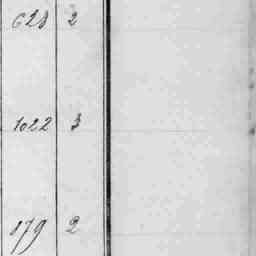 628 2
1022 3
879 2